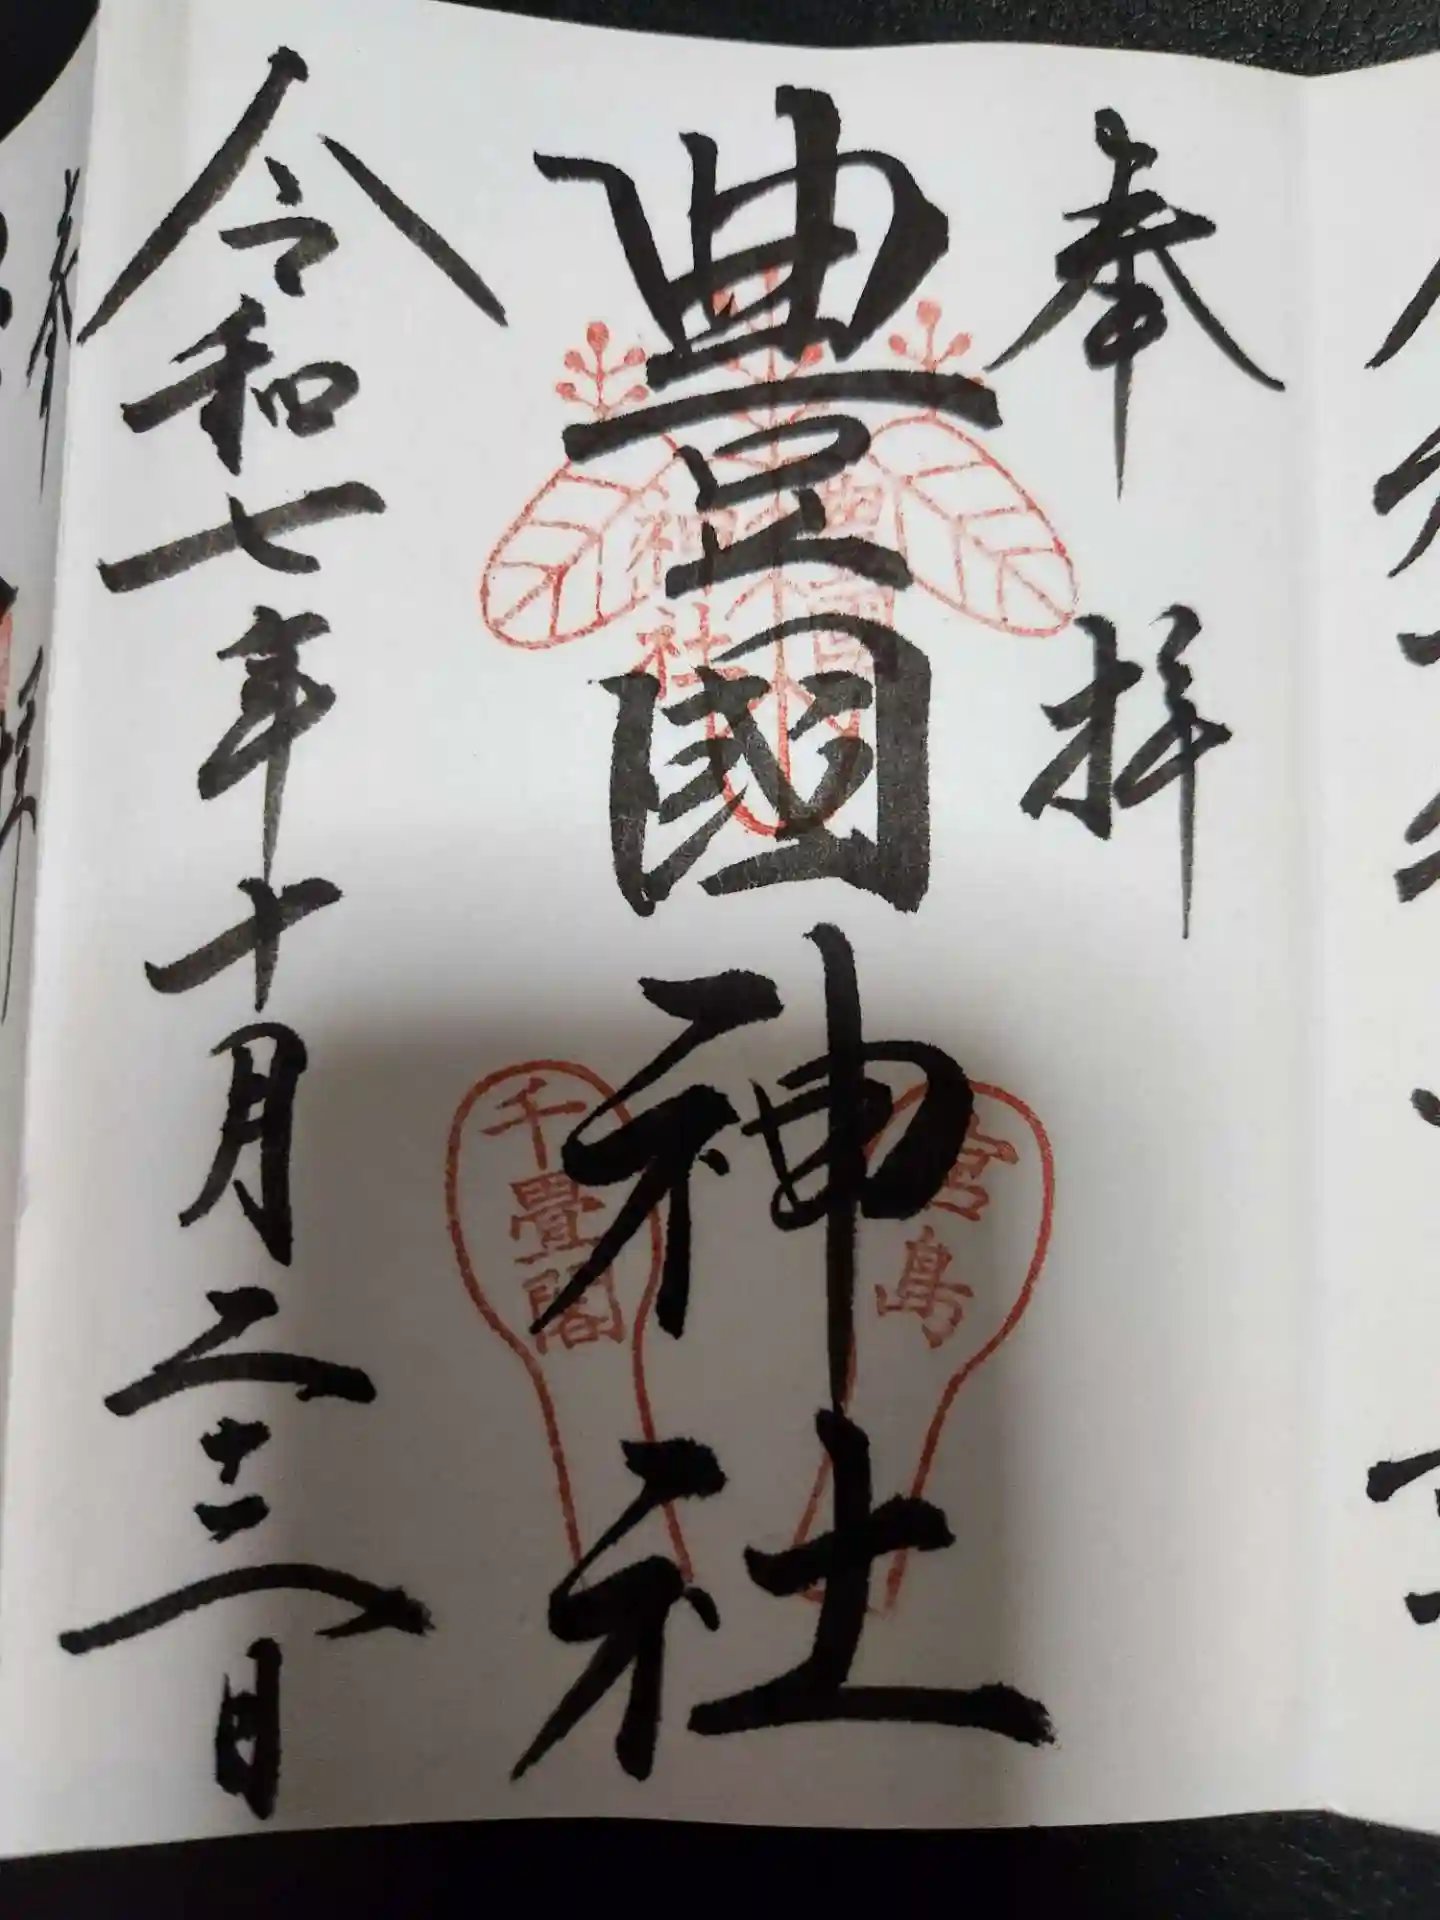 奉拝
豊國神社
令和七年十月二十三日
豊國
神社
宮島
千畳閣